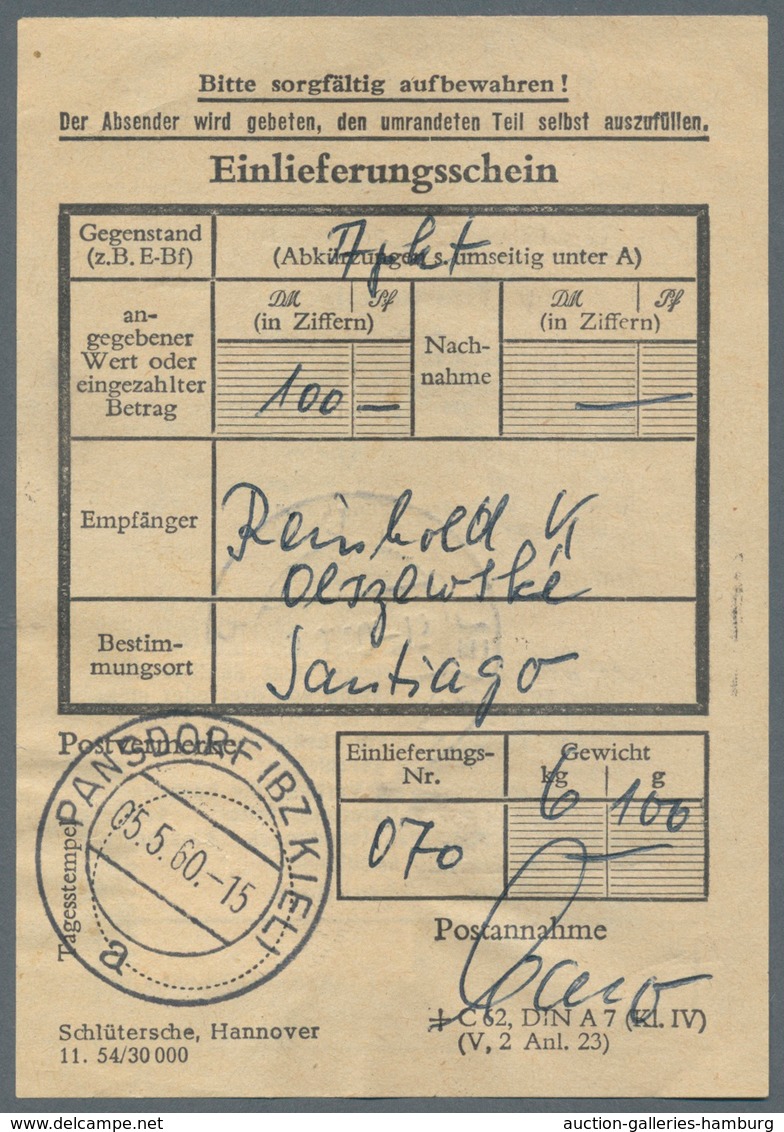 Bitte sorgfältig aufbewahren!
Der Absender wird gebeten, den umrandeten Teil selbst auszufüllen.
Einlieferungsschein
Gegenstand
(z.B. E-Bf)
(Abkürzungen s. umseitig unter A)
an-
gegebener
Wert oder
eingezahlter
Betrag
DM Pf
(in Ziffern)
100 —
Nach-
nahme
DM Pf
(in Ziffern)
—
Empfänger
Reinhold
Olszewski
Bestim-
mungsort
Santiago
Postvermerke
Tagesstempel
PANSDORF (BZ KIEL)
05.5.60.-15
a
Einlieferungs-
Nr.
070
Gewicht
kg g
6 100
Postannahme
C 62, DIN A 7 (Kl. IV)
(V, 2 Anl. 23)
Schlütersche, Hannover
11. 54/30 000
auction-galleries-hamburg